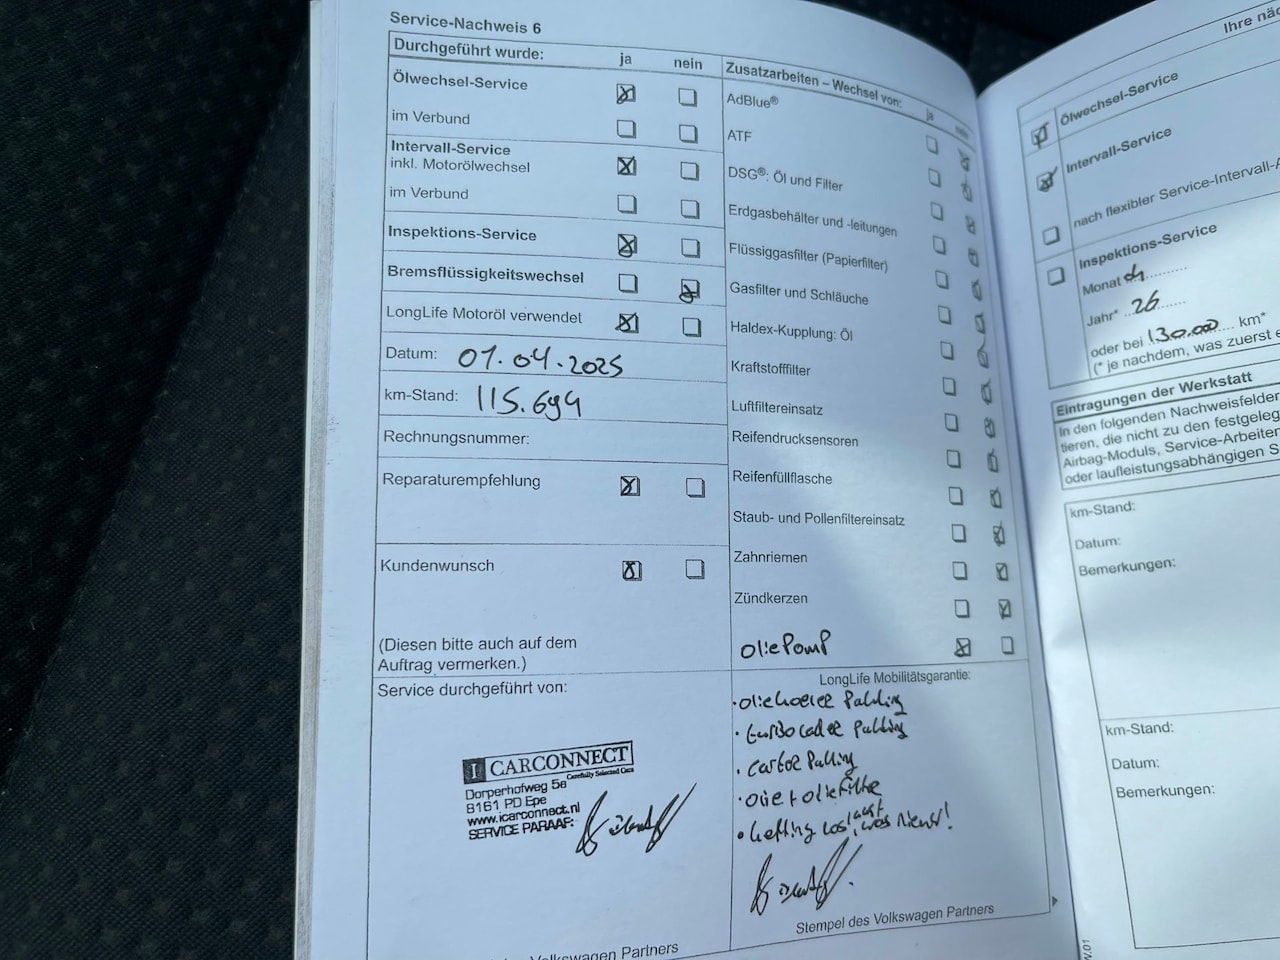 Service-Nachweis 6
Durchgeführt wurde: ja nein
Ölwechsel-Service
im Verbund
Intervall-Service
inkl. Motorölwechsel
im Verbund
Inspektions-Service
Bremsflüssigkeitswechsel
LongLife Motoröl verwendet
Datum: 01.04.2025
km-Stand: 115.694
Rechnungsnummer:
Reparaturempfehlung
Kundenwunsch
(Diesen bitte auch auf dem
Auftrag vermerken.)
Service durchgeführt von:
I CARCONNECT
Carefully Selected Cars
Dorperhofweg 5a
8161 PD Epe
www.icarconnect.nl
SERVICE PARAAF:
Volkswagen Partners
Zusatzarbeiten – Wechsel von: ja nein
AdBlue®
ATF
DSG®: Öl und Filter
Erdgasbehälter und -leitungen
Flüssiggasfilter (Papierfilter)
Gasfilter und Schläuche
Haldex-Kupplung: Öl
Kraftstofffilter
Luftfiltereinsatz
Reifendrucksensoren
Reifenfüllflasche
Staub- und Pollenfiltereinsatz
Zahnriemen
Zündkerzen
oliePomP
LongLife Mobilitätsgarantie:
• oliekoeler Pakking
• turbo Pakking
• carter Pakking
• olie + olie Filter
• ketting was nieuw!
Stempel des Volkswagen Partners
Ihre näc
Ölwechsel-Service
Intervall-Service
nach flexibler Service-Intervall-A
Inspektions-Service
Monat 04
Jahr* 26
oder bei 130.000 km*
(* je nachdem, was zuerst e
Eintragungen der Werkstatt
In den folgenden Nachweisfelder
tieren, die nicht zu den festgeleg
Airbag-Moduls, Service-Arbeiten
oder laufleistungsabhängigen S
km-Stand:
Datum:
Bemerkungen:
km-Stand:
Datum:
Bemerkungen: